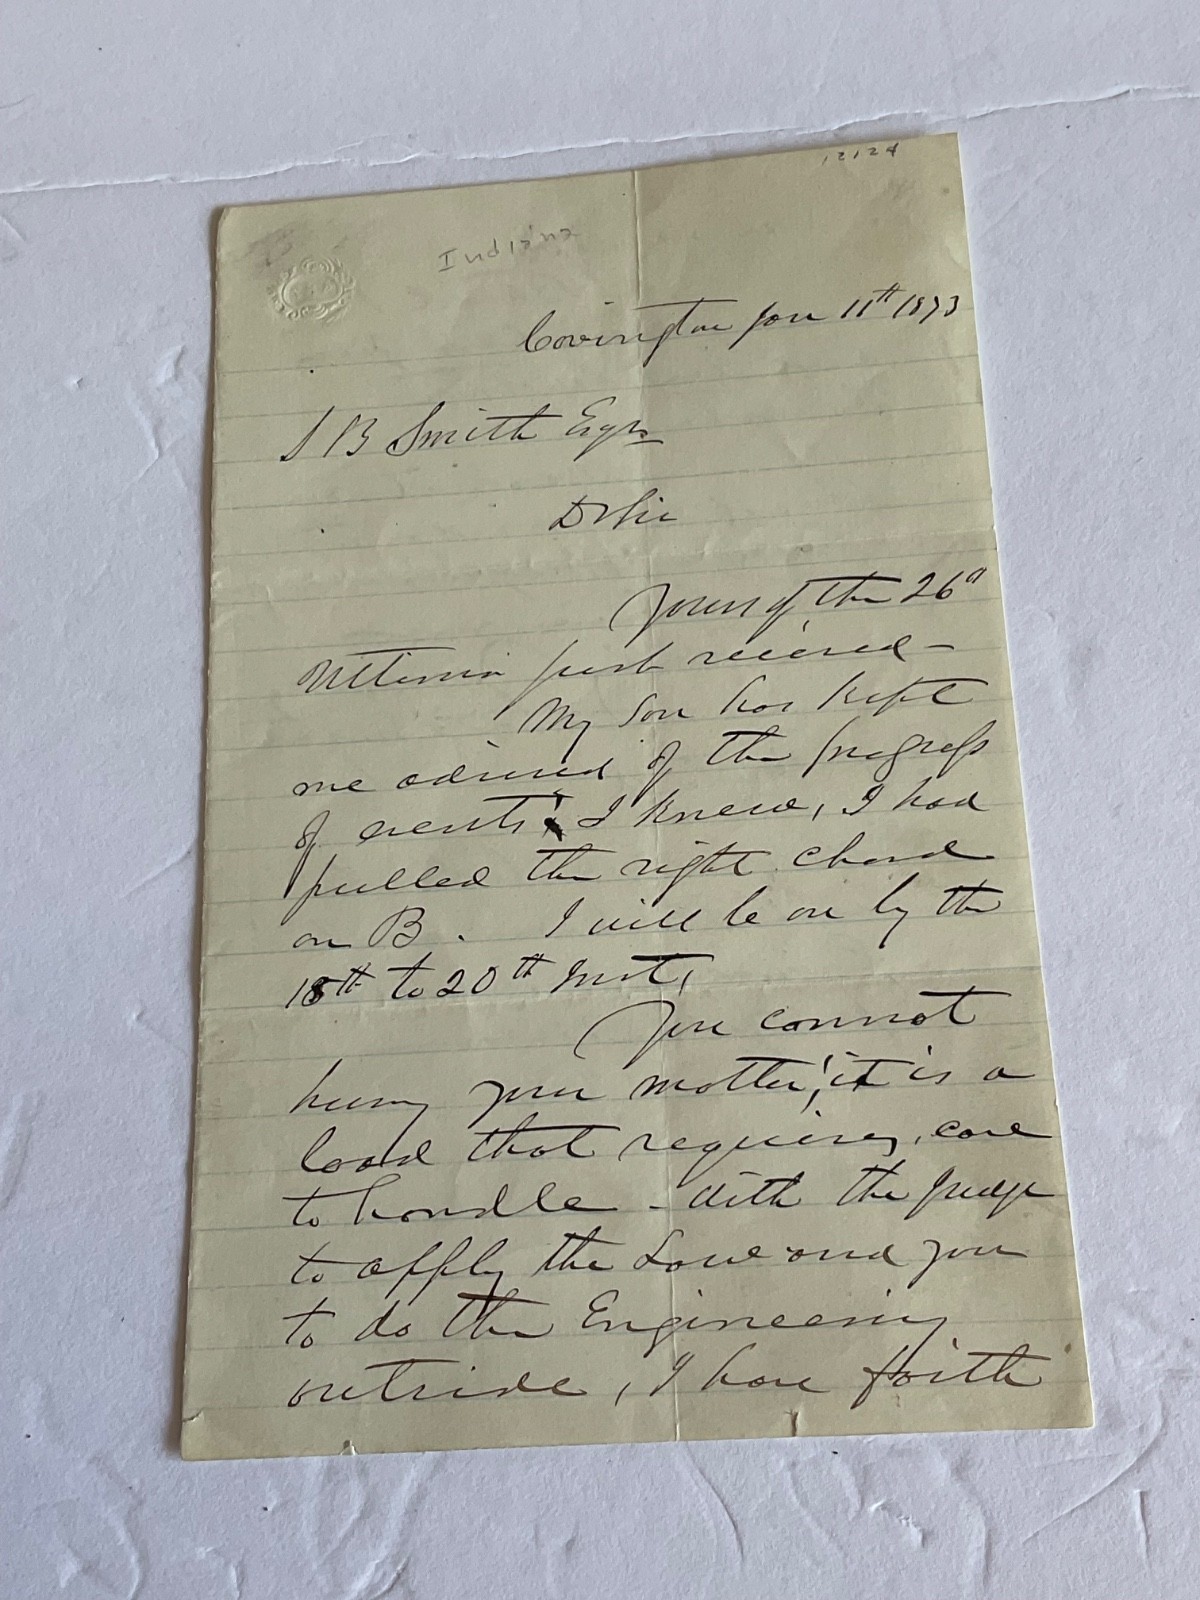 12124
Indiana
Covington Jan 11th 1873
S B Smith Esqr
D Sir
Yours of the 26"
Ultimo just received -
My Son has kept
me advised of the progress
of events! I knew, I had
pulled the right chord
on B. I will be on by the
18th to 20th Inst,
You cannot
hurry your matter, it is a
load that requires, care
to handle - With the Judge
to apply the Law and you
to do the Engineering
outside, I have faith